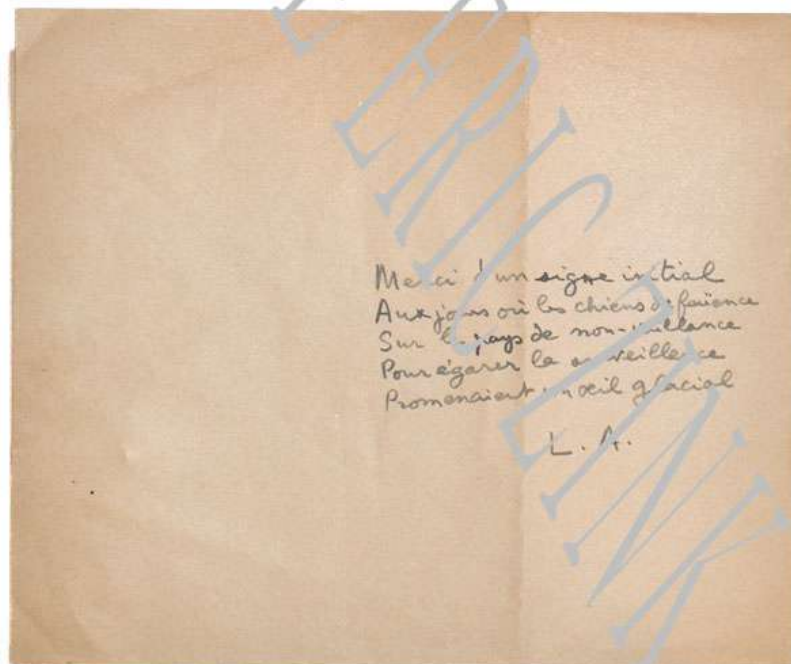 Merci d'un signe initial
Aux jours où les chiens de faïence
Sur le pays de non-vaillance
Pour égarer la surveillance
Promenaient un œil glacial
L. A.
ERIC LINK